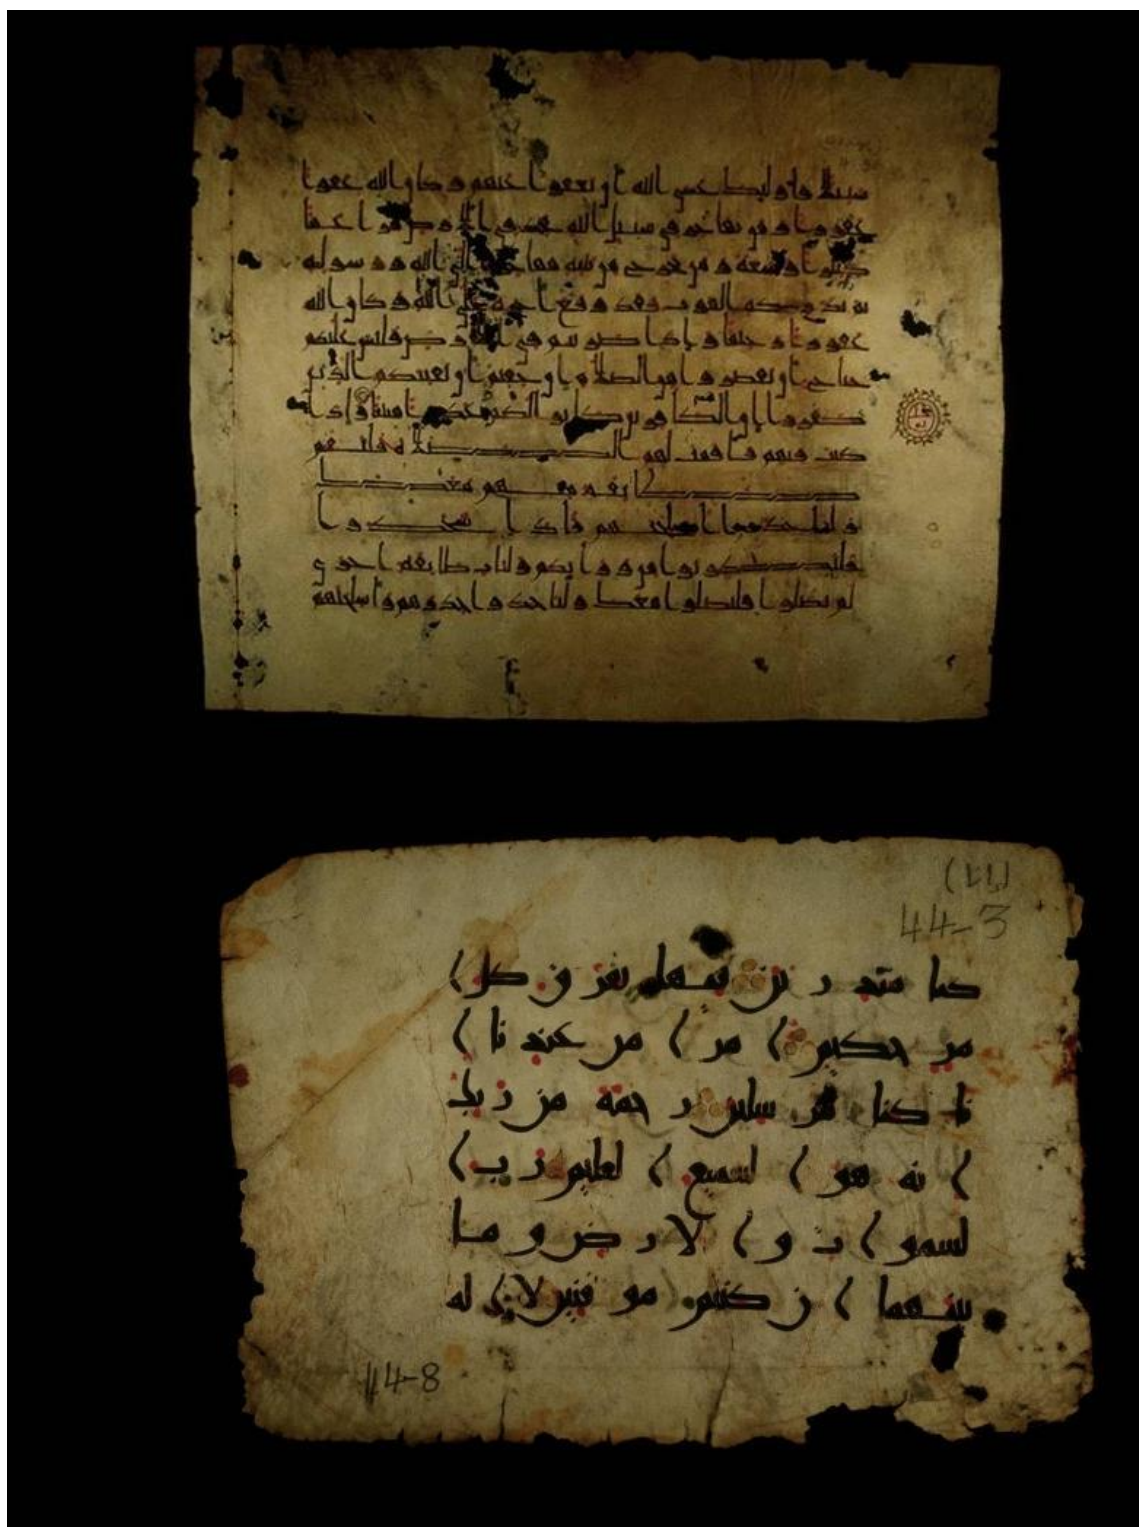 سبيلا فاولئك عسى الله ان يعفو عنهم وكان الله عفوا
غفورا ومن يهاجر في سبيل الله يجد في الارض مرغما
كثيرا وسعة ومن يخرج من بيته مهاجرا الى الله ورسوله
ثم يدركه الموت فقد وقع اجره على الله وكان الله
غفورا رحيما واذا ضربتم في الارض فليس عليكم
جناح ان تقصروا من الصلاة ان خفتم ان يفتنكم الذين
كفروا ان الكافرين كانوا لكم عدوا مبينا واذا
كنت فيهم فاقمت لهم الصلاة فلتقم
طائفة منهم معك
وليأخذوا اسلحتهم فاذا سجدوا
فليكونوا من ورائكم ولتات طائفة اخرى
لم يصلوا فليصلوا معك وليأخذوا حذرهم واسلحتهم
(٤٤)
44-3
كنا منذرين فيها يفرق كل ا
مر حكيم امرا من عندنا ا
نا كنا مرسلين رحمة من ربك
انه هو السميع العليم رب ا
لسموات والارض وما
بينهما ان كنتم موقنين لا اله
44-8